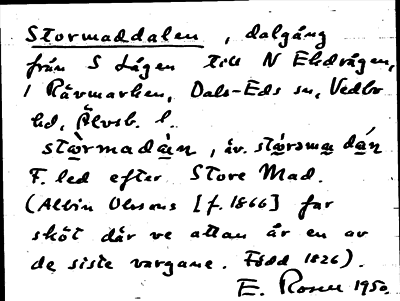 Stormaddalen, dalgång
från S Lågen till N Ehdvågen,
i Rävmarken, Dals-Eds sn, Vedbo
hd, Älvsb. l.
stòrmadàn, äv. stórsma dán
F. led efter Store Mad.
(Albin Olssons [f. 1866] far
sköt där ve altan är en av
de siste vargane. Född 1826).
E. Rosen 1950.